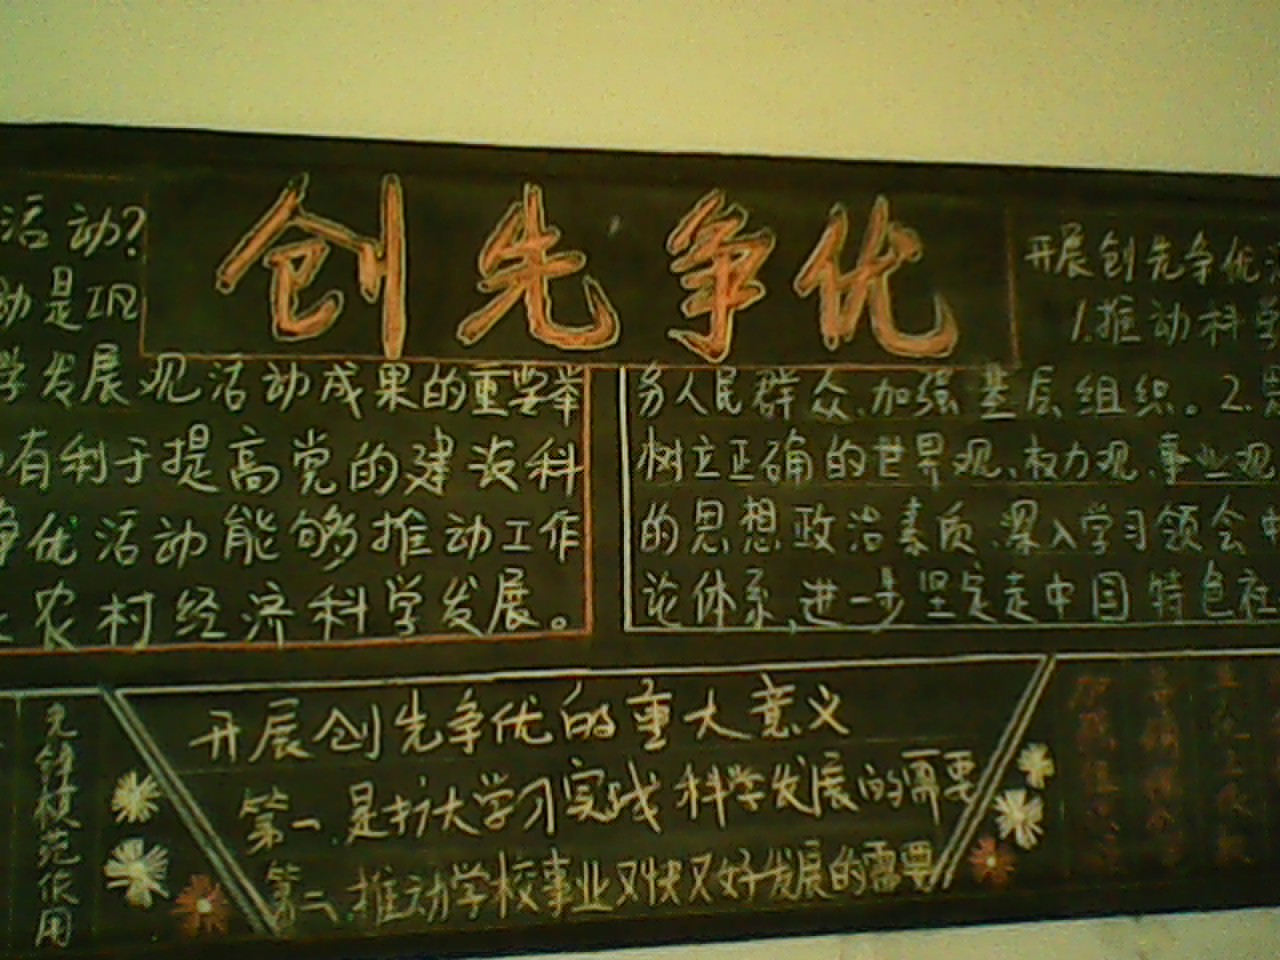 创先争优
活动?
动是
学发展观活动成果的重要举
有利于提高党的建设科
争优活动能够推动工作
农村经济科学发展。
开展创先争优活
1.推动科学
务人民群众、加强基层组织。2.
树立正确的世界观、权力观、事业观
的思想政治素质、深入学习领会中
论体系,进一步坚定走中国特色社
先锋模范作用
开展创先争优的重大意义
第一、是扩大学习实践科学发展的需要
第二、推动学校事业又快又好发展的需要